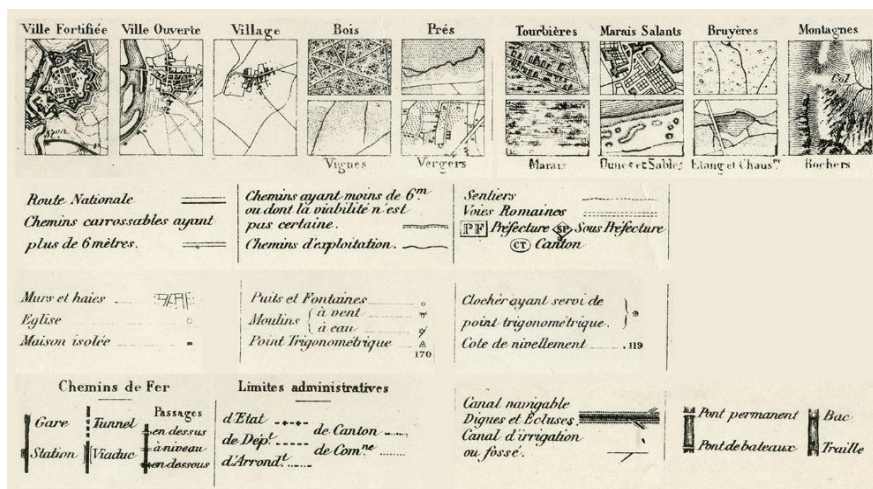 Ville Fortifiée Ville Ouverte Village Bois Prés Tourbières Marais Salants Bruyères Montagnes
Col
Vignes Vergers Marais Dunes et Sables Etang et Chaus.ée Rochers
Route Nationale
Chemins carrossables ayant
plus de 6 mètres.
Chemins ayant moins de 6.m
ou dont la viabilité n'est
pas certaine.
Chemins d'exploitation.
Sentiers
Voies Romaines
PF Préfecture SP Sous Préfecture
CT Canton
Murs et haies
Eglise
Maison isolée
Puits et Fontaines
Moulins { à vent
à eau
Point Trigonométrique
170
Clocher ayant servi de
point trigonométrique.
Cote de nivellement .119
Chemins de Fer
Gare
Station
Tunnel
Viaduc
Passages
en dessus
à niveau
en dessous
Limites administratives
d'Etat
de Dép.t
d'Arrond.t
de Canton
de Com.ne
Canal navigable
Digues et Ecluses.
Canal d'irrigation
ou fossé.
Pont permanent
Pont de bateaux
Bac
Traille